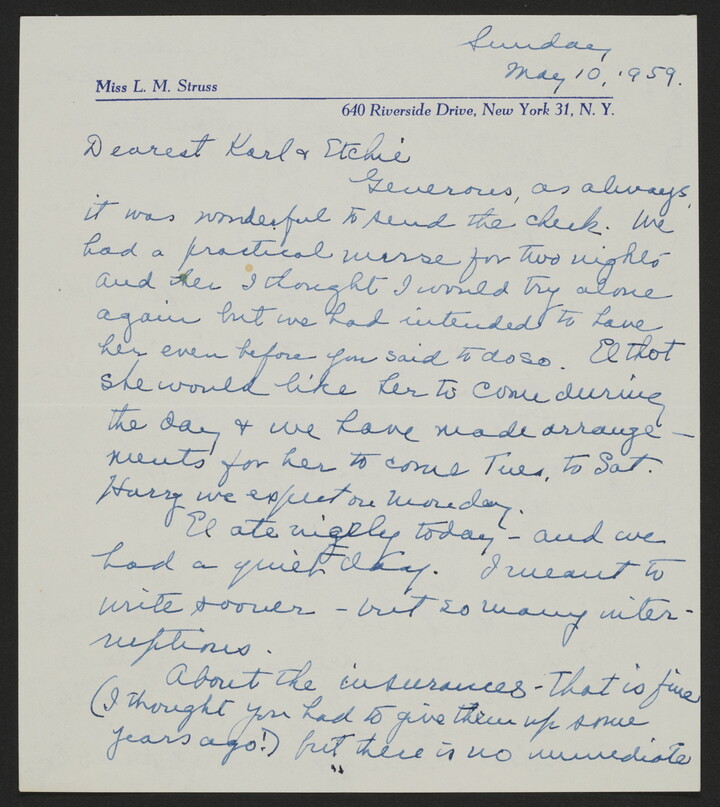 Sunday
May 10, 1959.
Miss L. M. Struss
640 Riverside Drive, New York 31, N. Y.
Dearest Karl & Etchie
Generous, as always,
it was wonderful to send the check. We
had a practical nurse for two nights
and then I thought I would try alone
again but we had intended to have
her even before you said to do so. El thot
she would like her to come during
the day & we have made arrange-
ments for her to come Tues. to Sat.
Harry we expect on Monday.
El ate nicely today - and we
had a quiet day. I meant to
write sooner - but so many inter-
ruptions.
About the insurances - that is fine
(I thought you had to give them up some
years ago!) but there is no immediate